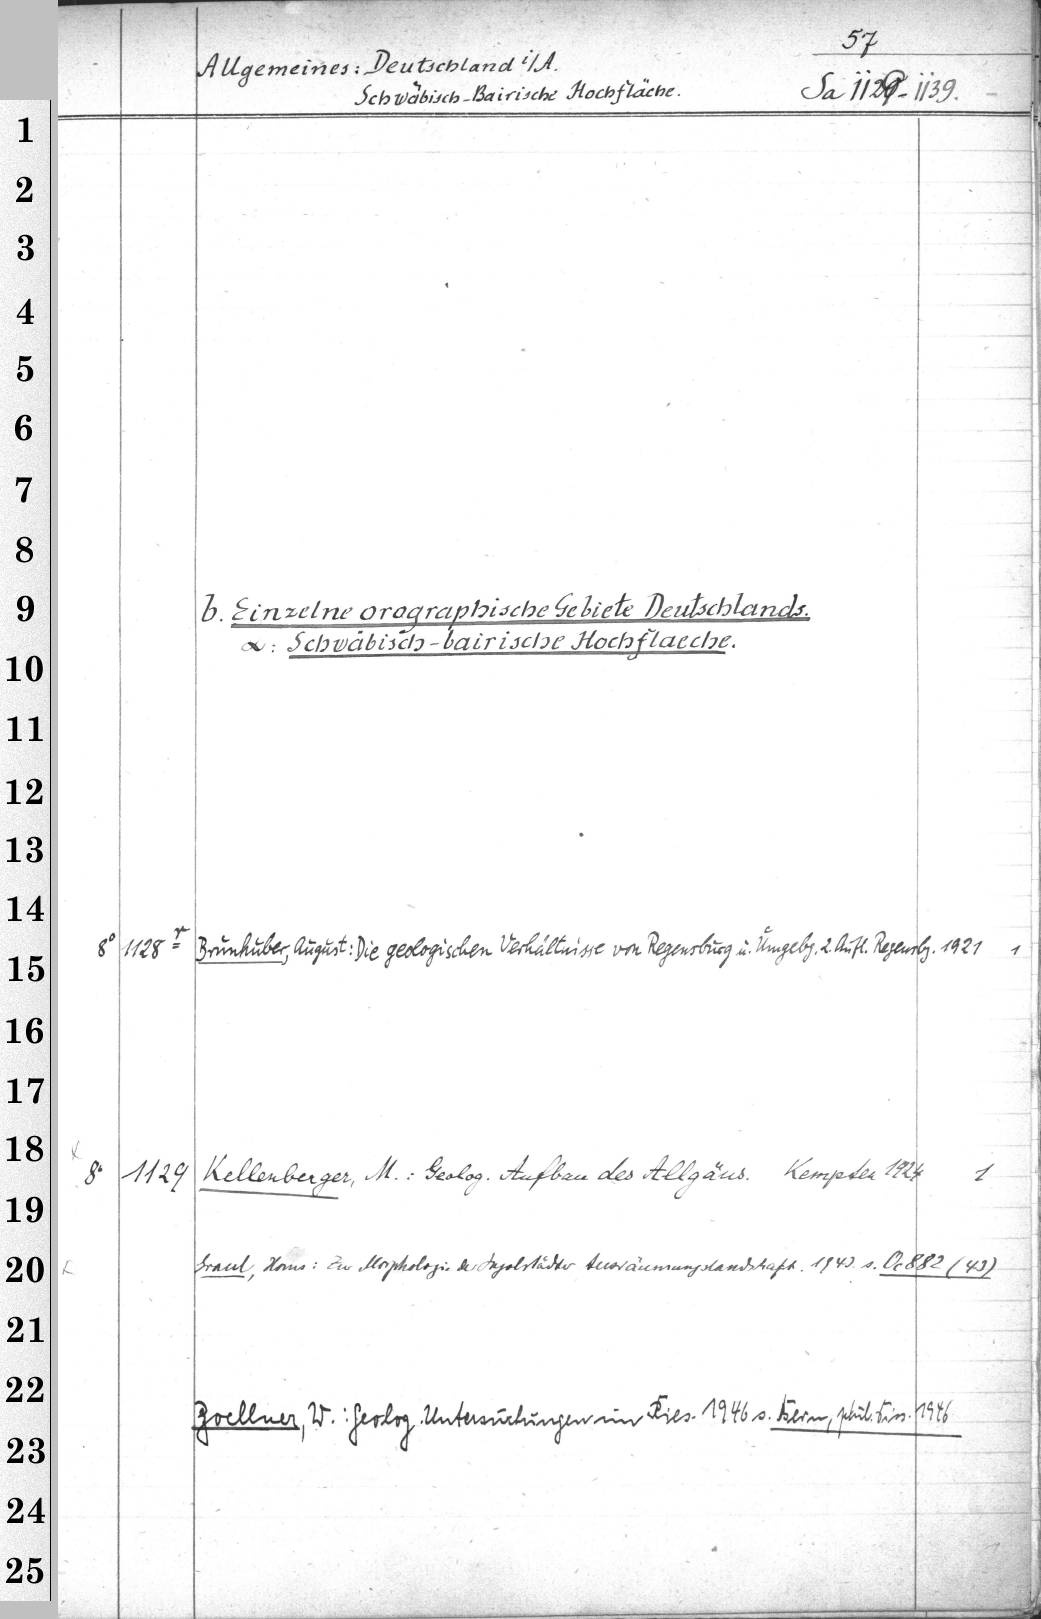 57
Allgemeines: Deutschland i/A.
Schwäbisch-Bairische Hochfläche.
Sa 1129-1139.
1
2
3
4
5
6
7
8
9
b. Einzelne orographische Gebiete Deutschlands.
α: Schwäbisch-bairische Hochflaeche.
10
11
12
13
14
8° 1128 r Brunhuber, August: Die geologischen Verhältnisse von Regensburg u. Umgebg. 2. Aufl. Regensbg. 1921 1
15
16
17
18
8° 1129 Kellenberger, M.: Geolog. Aufbau des Allgäus. Kempten 1924 1
19
20
Graul, Hans: Zur Morphologie der Ingolstädter Ausräumungslandschaft. 1943 s. Oc 882 (43)
21
22
Zoellner, W.: Geolog. Untersuchungen im Ries. 1946 s. Bern, phil. Diss. 1946
23
24
25